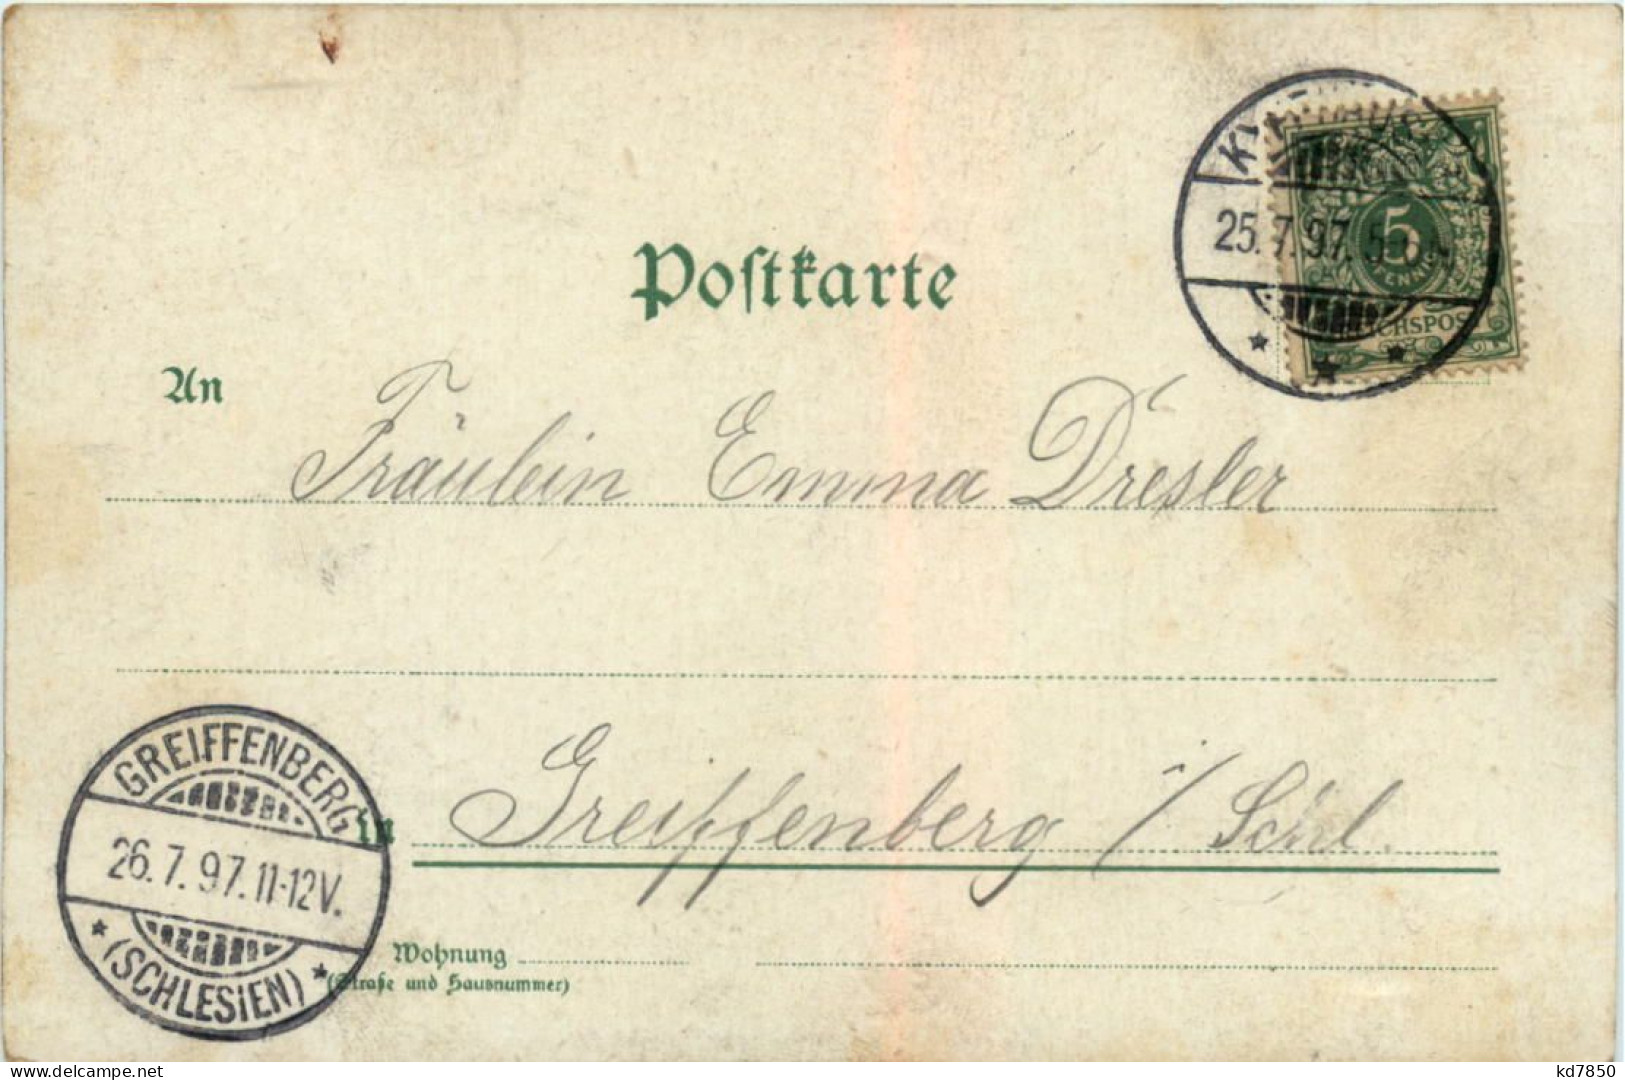 Postkarte
25.7.97.
5
REICHSPOST
An
Fräulein Emma Dresler
GREIFFENBERG
26.7.97.11-12V.
(SCHLESIEN)
in Greiffenberg i/Schl.
Wohnung
(Straße und Hausnummer)
delcampe.net
kd7850